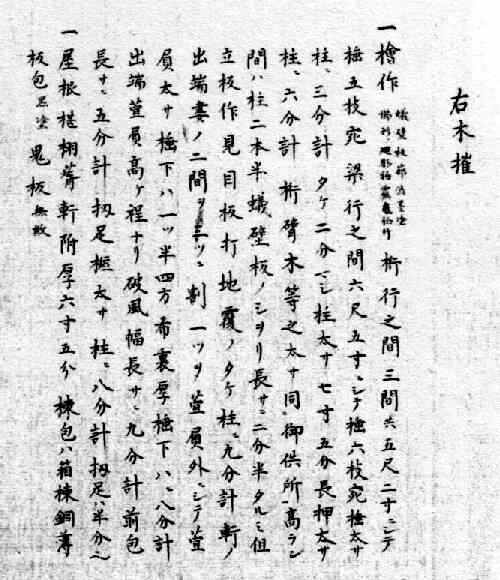 右木摧
一檜作 蟻壁板 桁行之間三間共五尺二寸ニシテ
極五枝宛梁行之間六尺五寸ニシテ極六枝宛極太サ
柱ニ三分計タケ二分マシ柱太サ七寸五分長押太サ
柱ニ六分計桁臂木等之太サ同御供所高ラン
間ハ柱二本半蟻壁板ノシヲリ長サニ二分半タルミ但
立板作見目板打地覆ノタケ柱ニ九分計軒ノ
出端妻ノ二間ヲ三ツニ割一ツヲ萱員外ニシテ萱
員太サ極下ハ一ツ半四方布裏厚極下ハニ八分計
出端萱員高ケ程ナリ破風幅長サニ九分計前包
長サニ五分計扨足桁太サ柱ニ八分計扨足ニ半分
一屋根柿葺軒附厚六寸五分棟包ハ箱棟銅薄
板包黒塗鬼板無紋